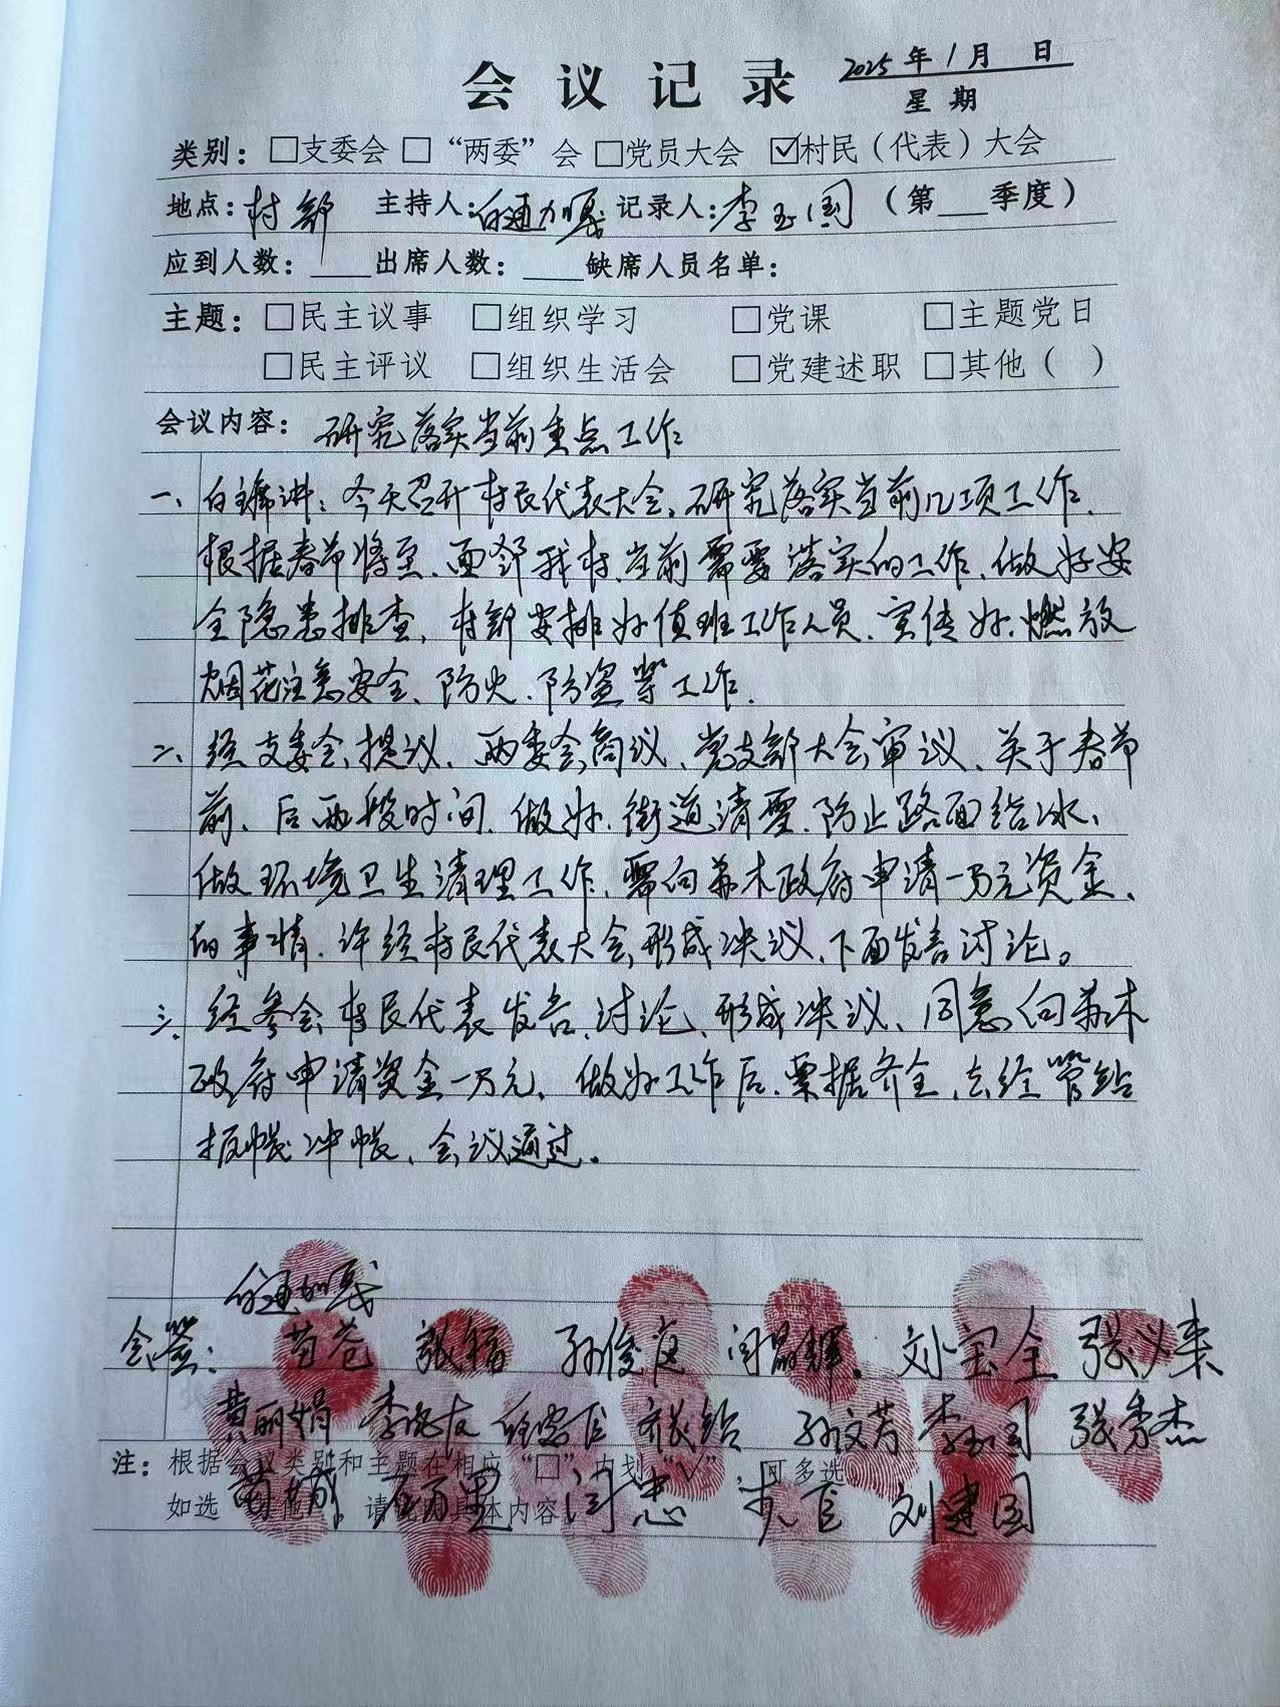 会议记录
2025年1月 日
星期
类别：□支委会 □“两委”会 □党员大会 ☑村民（代表）大会
地点：村部 主持人：白通力嘎 记录人：李玉国（第 季度）
应到人数： 出席人数： 缺席人员名单：
主题：□民主议事 □组织学习 □党课 □主题党日
□民主评议 □组织生活会 □党建述职 □其他（ ）
会议内容：研究落实当前重点工作
一、白主席讲：今天召开村民代表大会、研究落实当前几项工作、
根据春节将至、面邻我村、当前需要落实的工作、做好安
全隐患排查、村部安排好值班工作人员、宣传好、燃放
烟花注意安全、防火、防盗等工作、
二、经支委会提议、两委会商议、党支部大会审议、关于春节
前、后两段时间、做好、街道清雪、防止路面结冰、
做环境卫生清理工作、需向苏木政府申请一万元资金、
的事情、许经村民代表大会形成决议、下面发言讨论。
三、经参会村民代表发言、讨论、形成决议、同意向苏木
政府申请资金一万元、做好工作后、票据齐全、去经管站
报帐冲帐、会议通过。
会签：
张福 孙俊 刘宝全 张义
黄丽娟 李 孙文芳 李玉国 张秀杰
注：根据会议类别和主题在相应“□”内划“√”，可多选
闫忠 刘建国
如选 其他 请 具体内容